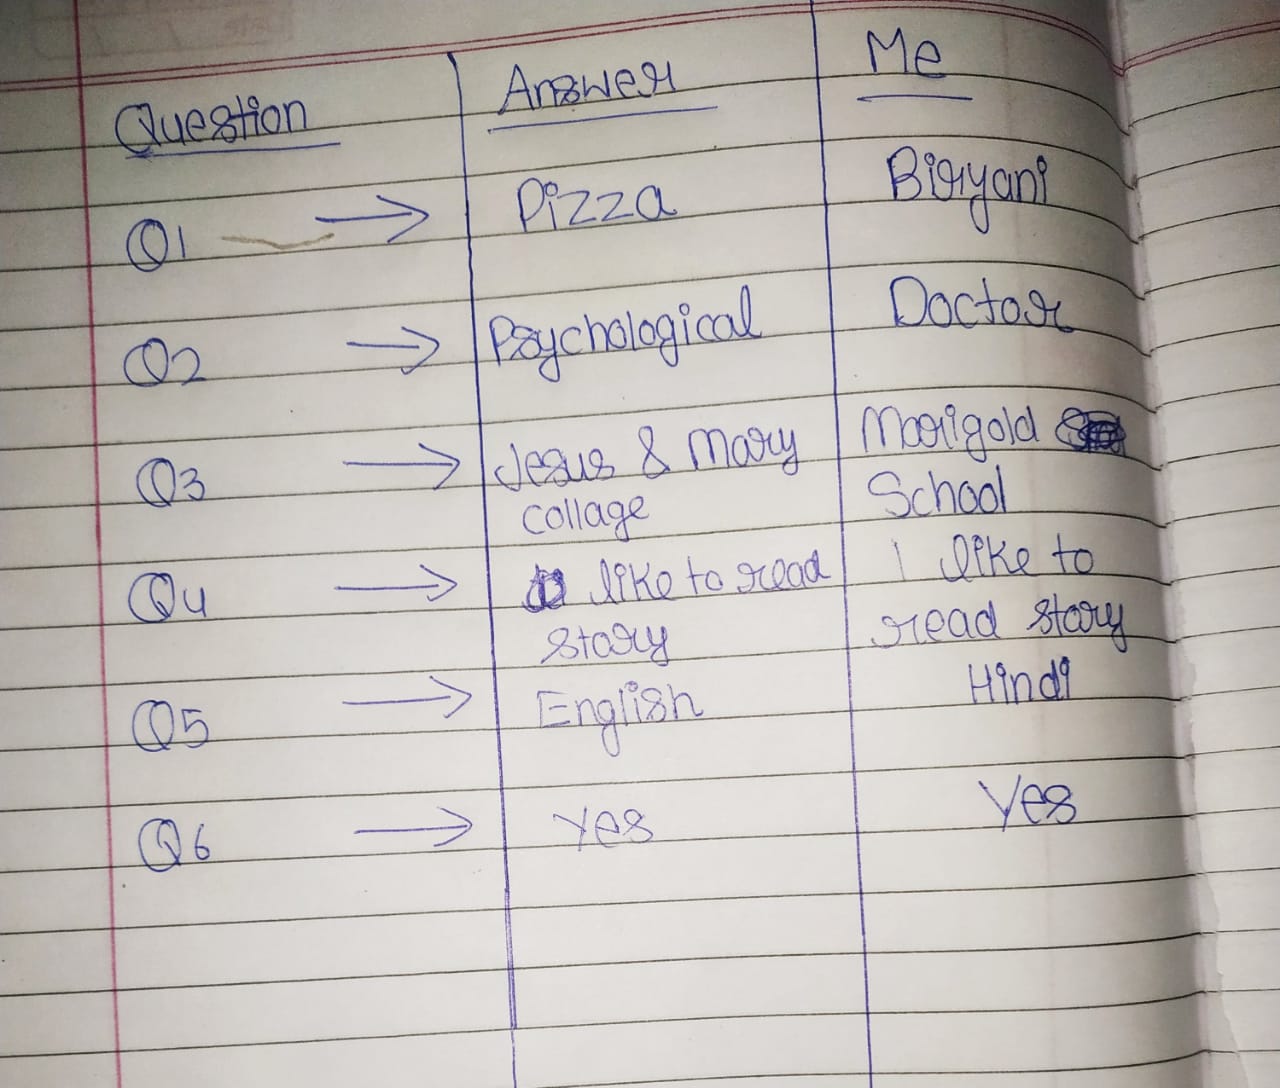 Question Answer Me
Q1 → Pizza Biryani
Q2 → Psychological Doctor
Q3 → Jesus & Mary Marigold
collage School
Q4 → like to read I like to
story read story
Q5 → English Hindi
Q6 → Yes Yes